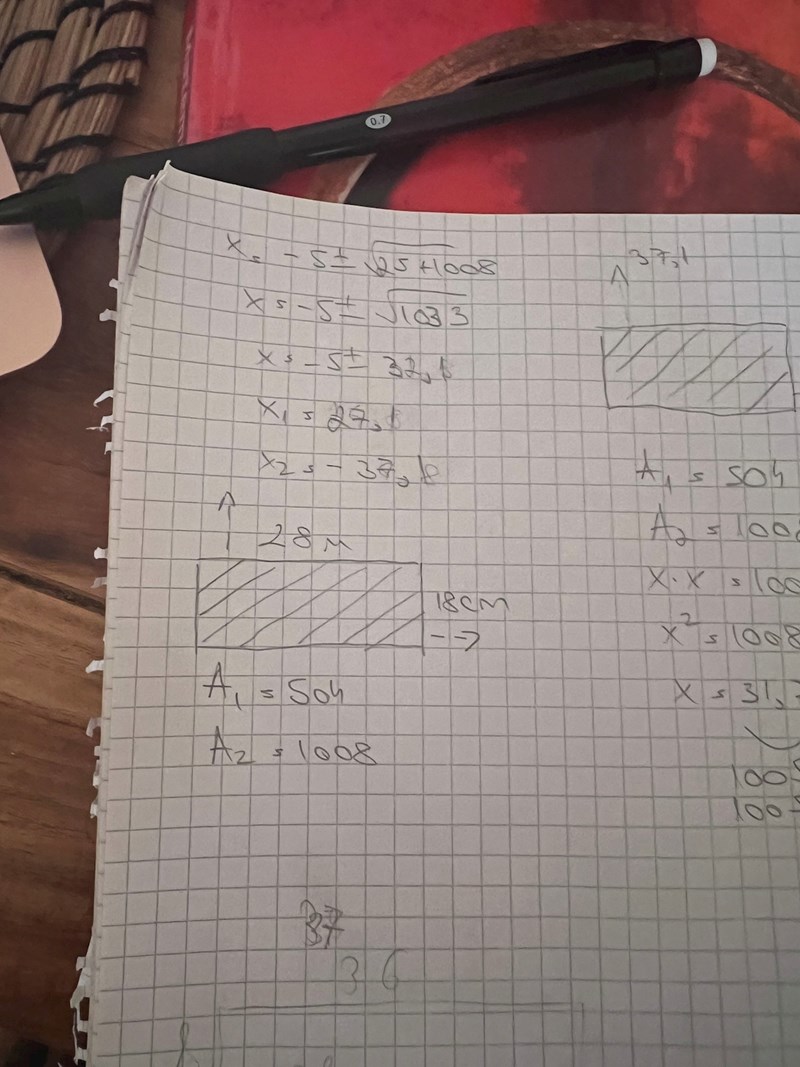 0.7
x = -5 ± √25+1008
x = -5 ± √1033
x = -5 ± 32,1
x₁ = 27,1
x₂ = - 37,1
28 m
18cm
A₁ = 504
A₂ = 1008
37
36
37,1
A₁ = 504
A₂ = 100
x·x = 100
x² = 1008
x = 31,
100
100